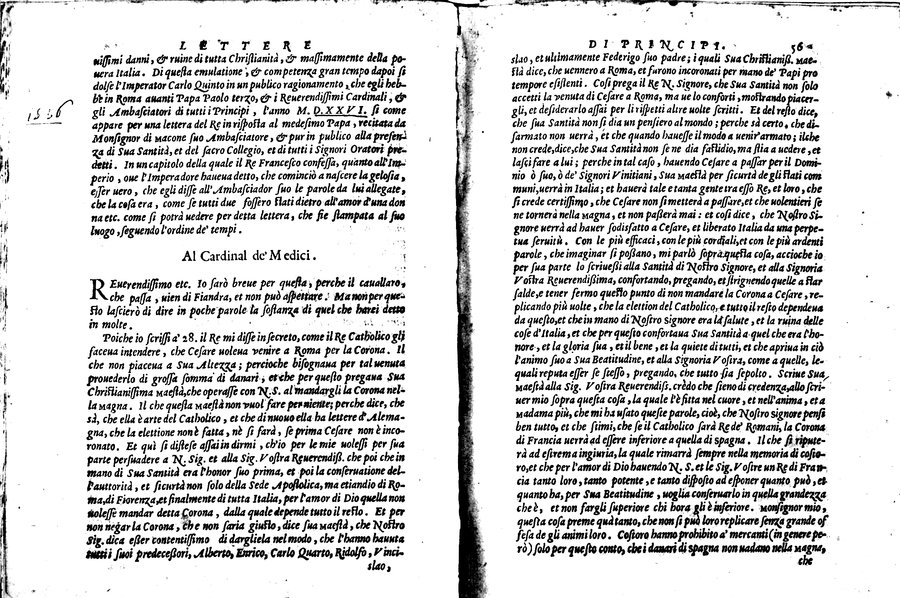 LETTERE
uissimi danni, & ruine di tutta Christianità, & massimamente della po-
uera Italia. Di questa emulatione, & competenza gran tempo dapoi si
dolse l'Imperator Carlo Quinto in un publico ragionamento, che egli heb-
be in Roma auanti Papa Paolo terzo, & i Reuerendissimi Cardinali, &
gli Ambasciatori di tutti i Principi, l'anno M. D. XXXVI. si come
1536
appare per una lettera del Re in risposta al medesimo Papa, recitata da
Monsignor di macone suo Ambasciatore, & pur in publico alla presen-
za di Sua Santità, et del sacro Collegio, et di tutti i Signori Oratori pre-
detti. In un capitolo della quale il Re Francesco confessa, quanto all'Im-
perio, oue l'Imperadore haueua detto, che cominciò a nascere la gelosia,
esser uero, che egli disse all'Ambasciador suo le parole da lui allegate,
che la cosa era, come se tutti due fossero stati dietro all'amor d'una don
na etc. come si potrà uedere per detta lettera, che fie stampata al suo
luogo, seguendo l'ordine de' tempi.
Al Cardinal de' Medici.
REuerendissimo etc. Io sarò breue per questa, perche il cauallaro,
che passa, uien di Fiandra, et non può aspettare: Ma non per que-
sto lascierò di dire in poche parole la sostanza di quel che harei detto
in molte.
Poiche io scrissi a' 28. il Re mi disse in secreto, come il Re Catholico gli
faceua intendere, che Cesare uoleua venire a Roma per la Corona. Il
che non piaceua a Sua Altezza; percioche bisognaua per tal uenuta
prouederlo di grossa somma di danari, et che per questo pregaua Sua
Christianissima maestà, che operasse con N.S. al mandargli la Corona nel-
la magna. Il che questa maestà non vuol fare per niente; perche dice, che
sà, che ella è arte del Catholico, et che di nuouo ella ha lettere d'Alema-
gna, che la elettione non è fatta, nè si farà, se prima Cesare non è inco-
ronato. Et quì si distese assai in dirmi, ch'io per le mie uolessi per sua
parte persuadere a N. Sig. et alla Sig. Vostra Reuerendiß. che poi che in
man di Sua Santità era l'honor suo prima, et poi la conseruatione del-
l'auttorità, et sicurtà non solo della Sede Apostolica, ma etiandio di Ro-
ma, di Fiorenza, et finalmente di tutta Italia, per l'amor di Dio quella non
uolesse mandar detta Corona, dalla quale depende tutto il resto. Et per
non negar la Corona, che non saria giusto, dice sua maestà, che Nostro
Sig. dica esser contentissimo di dargliela nel modo, che l'hanno hauuta
tutti i suoi predecessori, Alberto, Enrico, Carlo Quarto, Ridolfo, Vinci-
slao,
DI PRINCIPI. 56
slao, et ultimamente Federigo suo padre; i quali Sua Christianiß. mae-
stà dice, che uennero a Roma, et furono incoronati per mano de' Papi pro
tempore esistenti. Così prega il Re N. Signore, che Sua Santità non solo
accetti la venuta di Cesare a Roma, ma ue lo conforti, mostrando piacer-
gli, et desiderarlo assai per li rispetti altre uolte scritti. Et del resto dice,
che sua Santità non si dia un pensiero al mondo; perche sà certo, che di-
sarmato non uerrà, et che quando hauesse il modo a uenir' armato; il che
non crede, dice, che Sua Santità non se ne dia fastidio, ma stia a uedere, et
lasci fare a lui; perche in tal caso, hauendo Cesare a passar per il Domi-
nio ò suo, ò de' Signori Vinitiani, Sua maestà per sicurtà de gli stati com
muni, uerrà in Italia; et hauerà tale e tanta gente tra esso Re, et loro, che
si crede certissimo, che Cesare non si metterà a passare, et che uolentieri se
ne tornerà nella magna, et non passerà mai: et così dice, che Nostro Si-
gnore uerrà ad hauer sodisfatto a Cesare, et liberato Italia da una perpe-
tua seruitù. Con le più efficaci, con le più cordiali, et con le più ardenti
parole, che imaginar si possano, mi parlò sopra questa cosa, accioche io
per sua parte lo scriuessi alla Santità di Nostro Signore, et alla Signoria
Vostra Reuerendissima, confortando, pregando, et strignendo quelle a star
salde, e tener fermo questo punto di non mandare la Corona a Cesare, re-
plicando più uolte, che la elettion del Catholico, e tutto il resto dependeua
da questo, et che in mano di Nostro Signore era la salute, et la ruina delle
cose d'Italia, et che per questo confortaua Sua Santità a quel che era l'ho-
nore, et la gloria sua, et il bene, et la quiete di tutti, et che apriua in ciò
l'animo suo a Sua Beatitudine, et alla Signoria Vostra, come a quelle, le-
quali reputa esser se stesso, pregando, che tutto sia sepolto. Scriue Sua
maestà alla Sig. Vostra Reuerendiß. crèdo che sieno di credenza, allo scri-
uer mio sopra questa cosa, la quale l'è fitta nel cuore, et nell'anima, et a
madama più, che mi ha usato queste parole, cioè, che Nostro Signore pensi
ben tutto, et che stimi, che se il Catholico sarà Re de' Romani, la Corona
di Francia uerrà ad essere inferiore a quella di spagna. Il che si repute-
rà ad estrema ingiuria, la quale rimarrà sempre nella memoria di costo-
ro, et che per l'amor di Dio hauendo N. S. et le Sig. Vostre un Re di Fran-
cia tanto loro, tanto potente, e tanto disposto ad esponer quanto può, et
quanto ha, per Sua Beatitudine, uoglia conseruarlo in quella grandezza
che è, et non fargli superiore chi hora gli è inferiore. Monsignor mio,
questa cosa preme quà tanto, che non si può loro replicare senza grande of
fesa de gli animi loro. Costoro hanno prohibito a' mercanti (in genere pe-
rò) solo per questo conto, che i danari di spagna non uadano nella magna,
che